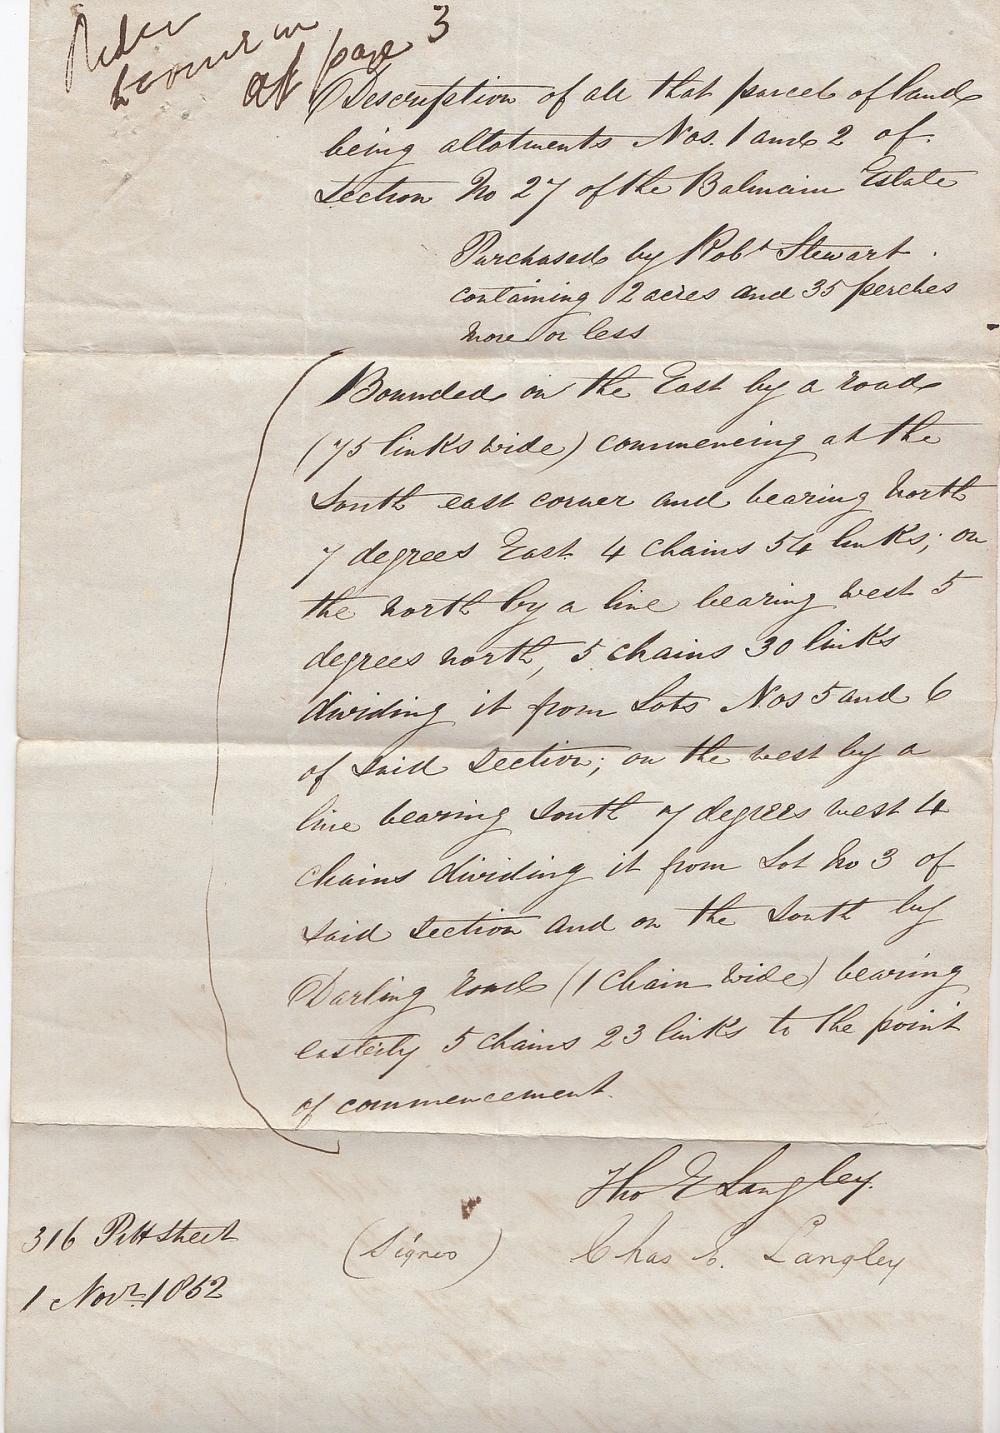 Rider
to come in
at page 3
Description of all that parcel of land
being allotments Nos. 1 and 2 of
Section No 27 of the Balmain Estate
Purchased by Robt Stewart
containing 2 acres and 35 perches
more or less
Bounded on the East by a road
(75 links wide) commencing at the
South east corner and bearing North
7 degrees East 4 chains 54 links; on
the north by a line bearing west 5
degrees north, 5 chains 30 links
dividing it from Lots Nos 5 and 6
of said Section; on the west by a
line bearing South 7 degrees west 4
chains dividing it from Lot No 3 of
said section and on the South by
Darling road (1 chain wide) bearing
easterly 5 chains 23 links to the point
of commencement.
Tho E Langley.
316 Pitt Street
(Signed) Chas E. Langley
1 Novr. 1852